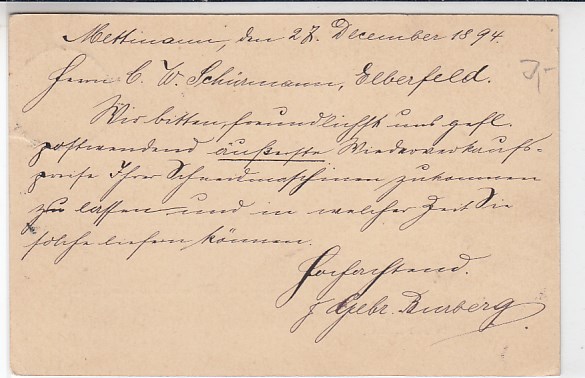 Mettmann, den 27. December 1894.
Herrn C. W. Schürmann, Elberfeld.
Wir bitten, freundlichst uns gefl.
postwendend äußerste Wiederverkaufs-
preise Ihrer Schneidmaschinen zukommen
zu lassen und in welcher Zeit Sie
solche liefern können.
Hochachtend.
Gebr. Burberg